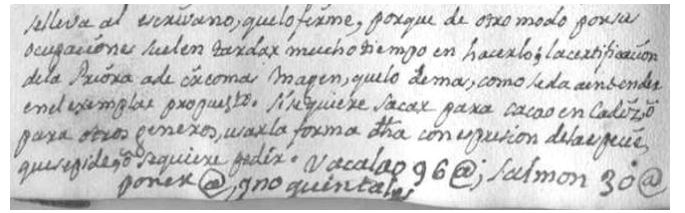 selleva al escrivano, quelo firme, porque de otro modo porsus
ocupaciones suelen tardar mucho tiempo en hacerlo; lacertificacion
dela Priora a de ser comas Margen, quelo demas, como seda aentender
enel exemplar propuesto. Si sequiere sacar para cacao en Cadiz, ô
para otros generos, usarla forma dha con espresion dela especie,
quesepide, ô sequiere pedir. Vacalao 96 @; Salmon 30 @
poner @, y no quintales